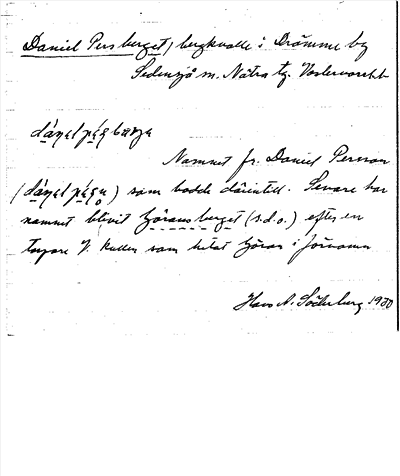 Daniel Persberget, bergkulle i Drömme by
Sidensjö sn. Nätra tg. Västernorrl.
dáṇel pę́ṣbærje
Namnet fr. Daniel Persson
(dáṇel pę́ṣn̥) som bodde därintill. Senare har
namnet blivit Göransberget (s.d.o.) efter en
torpare V. kullen som hetat Göran i förnamn
Hans A. Söderberg 1930